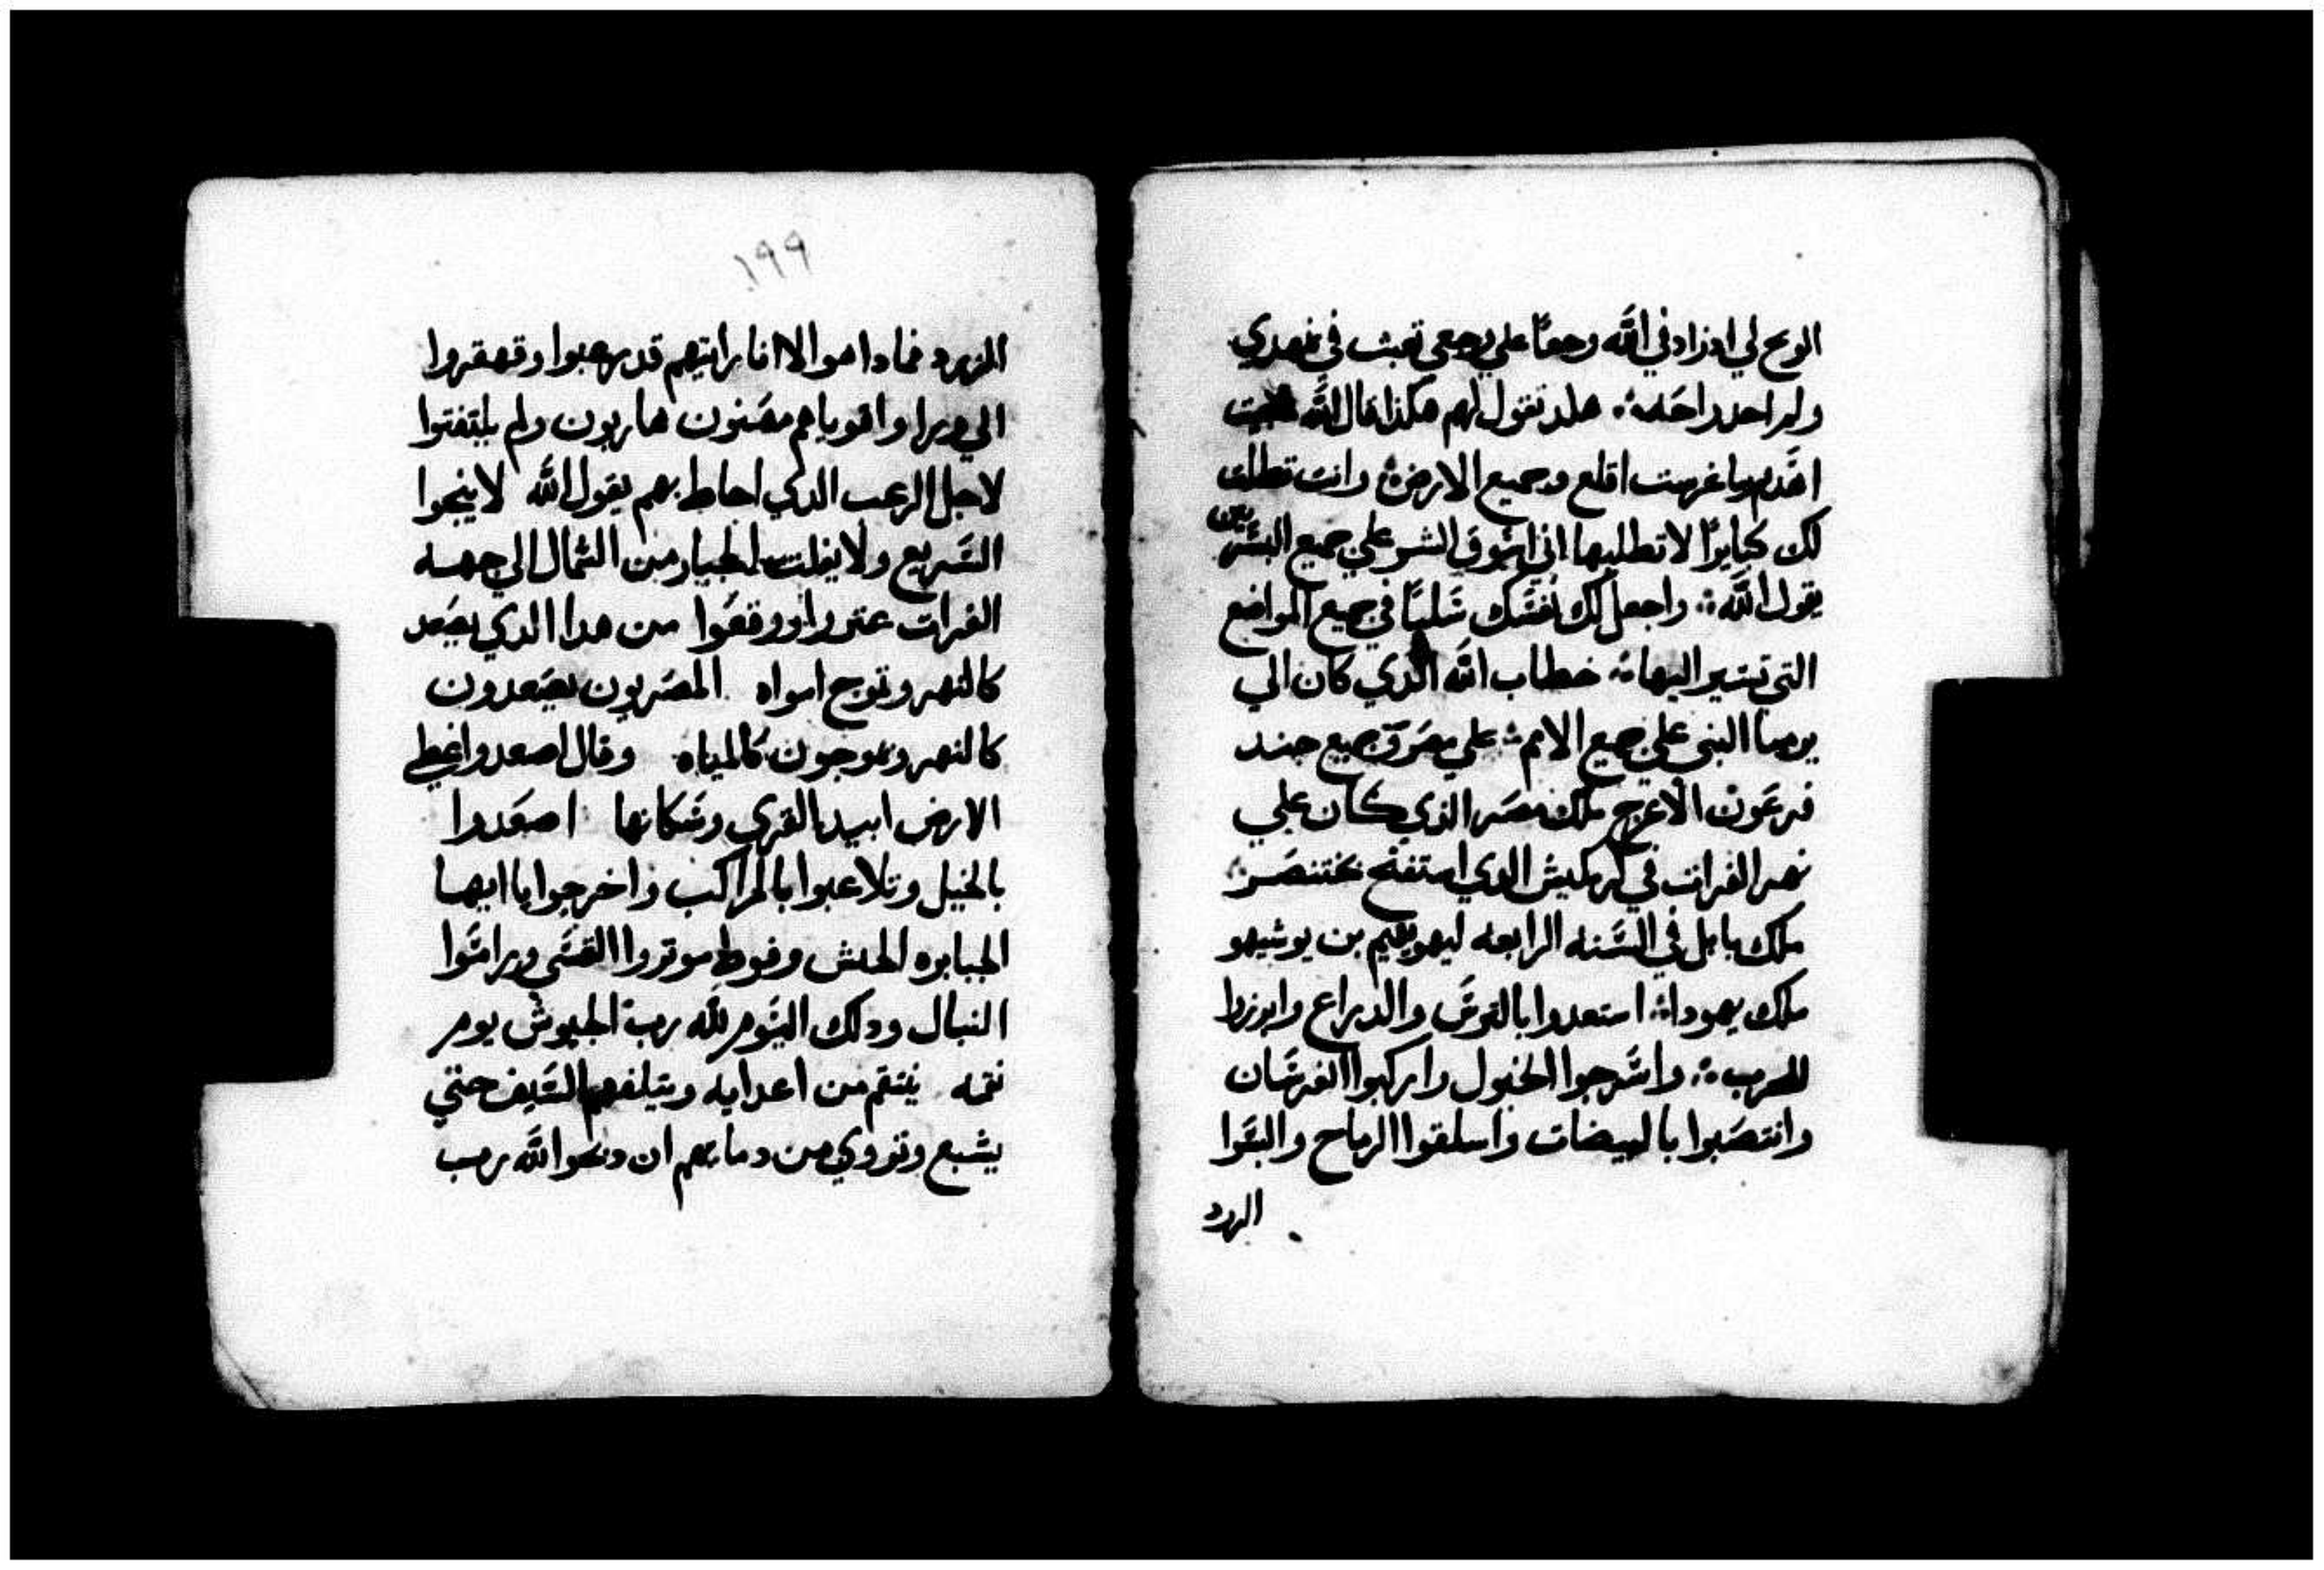 الويح لي اذ زادني الله وجعًا علي وجعي تعبت في تنهدي
ولم اجد راحه ∴ هكذا تقول لهم هكذا قال الله
اهدم وما غرست اقلع وجميع الارض ∴ وانت تطلب
لك كبايرًا لا تطلبها اني اسوق الشر علي جميع البشريين
يقول الله ∴ واجعل لك نفسك سلبًا في جميع المواضع
التي تسير اليها ∴ خطاب الله الذي كان الي
يرميا النبي علي جميع الامم ∴ علي مصر وجميع جند
فرعون الاعرج ملك مصر الذي كان علي
نهر الفرات في كركميش الدي استفتح بختنصر
ملك بابل في السنه الرابعه ليهوياقيم بن يوشيهو
ملك يهودا ∴ استعدوا بالترس والدراع وابرزوا
للحرب ∴ واسرجوا الخيول واركبوا الفرسان
وانتصبوا بالبيضات واسلقوا الرماح والبسوا
الزرد
١٩٩
الزرد فما داهوا الا انا رايتهم قد رهبوا وقهقروا
الي ورا واقوياهم هاربون ولم يلتفتوا
لاجل الرعب الدي احاط بهم يقول الله لا ينجوا
السريع ولا يفلت الجبار من الشمال الي جهه
الفرات عثروا ووقعوا من هدا الدي يصعد
كالنهر وتموج امواه المصريون يصعدون
كالنهر ويموجون كالمياه وقال اصعد واغطي
الارض ابيد القري وسكانها اصعدوا
بالخيل وتلاعبوا بالمراكب واخرجوا يا ايها
الجبابره الحبش وفوط موتروا القسي وراموا
النبال ودلك اليوم لله رب الجيوش يوم
نقمه ينتقم من اعدايه ويتلفهم السيف حتي
يشبع وتروي من دمايهم ان دبحوا لله رب